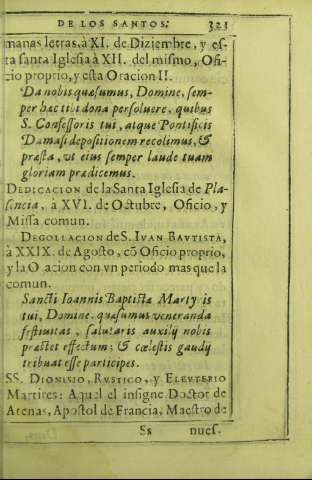 DE LOS SANTOS. 323
manas letras, à XI. de Diziembre, y eſ-
ta ſanta Igleſia à XII. del miſmo, Ofi-
cio proprio, y eſta Oracion II.
Da nobis quæſumus, Domine, ſem-
per hæc tibi dona perſoluere, quibus
S. Confeſſoris tui, atque Pontificis
Damaſi depoſitionem recolimus, &
præſta, ut eius ſemper laude tuam
gloriam prædicemus.
DEDICACION de la Santa Igleſia de Pla-
ſencia, à XVI. de Octubre, Oficio, y
Miſſa comun.
DEGOLLACION de S. IVAN BAVTISTA,
à XXIX. de Agoſto, cõ Oficio proprio,
y la O acion con vn periodo mas que la
comun.
Sancti Ioannis Baptiſtæ Marty is
tui, Domine. quæſumus veneranda
feſtiuitas, ſalutaris auxilij nobis
præſtet effectum; & cœleſtis gaudij
tribuat eſſe participes.
SS. DIONISIO, RVSTICO, y ELEVTERIO
Martires: Aquel el inſigne Doctor de
Atenas, Apoſtol de Francia, Maeſtro de
Ss nueſ-